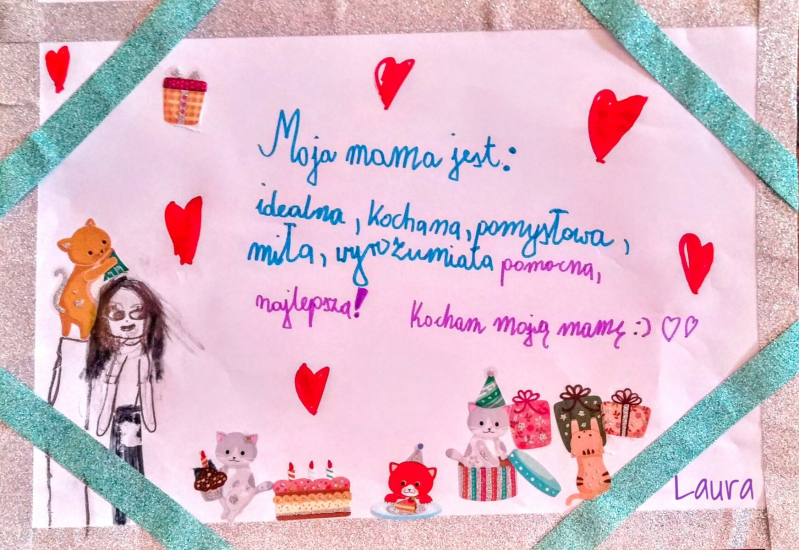 Moja mama jest:
idealna, kochana, pomysłowa,
miła, wyrozumiała pomocna,
najlepsza! Kocham moją mamę :) ♡♡
Laura